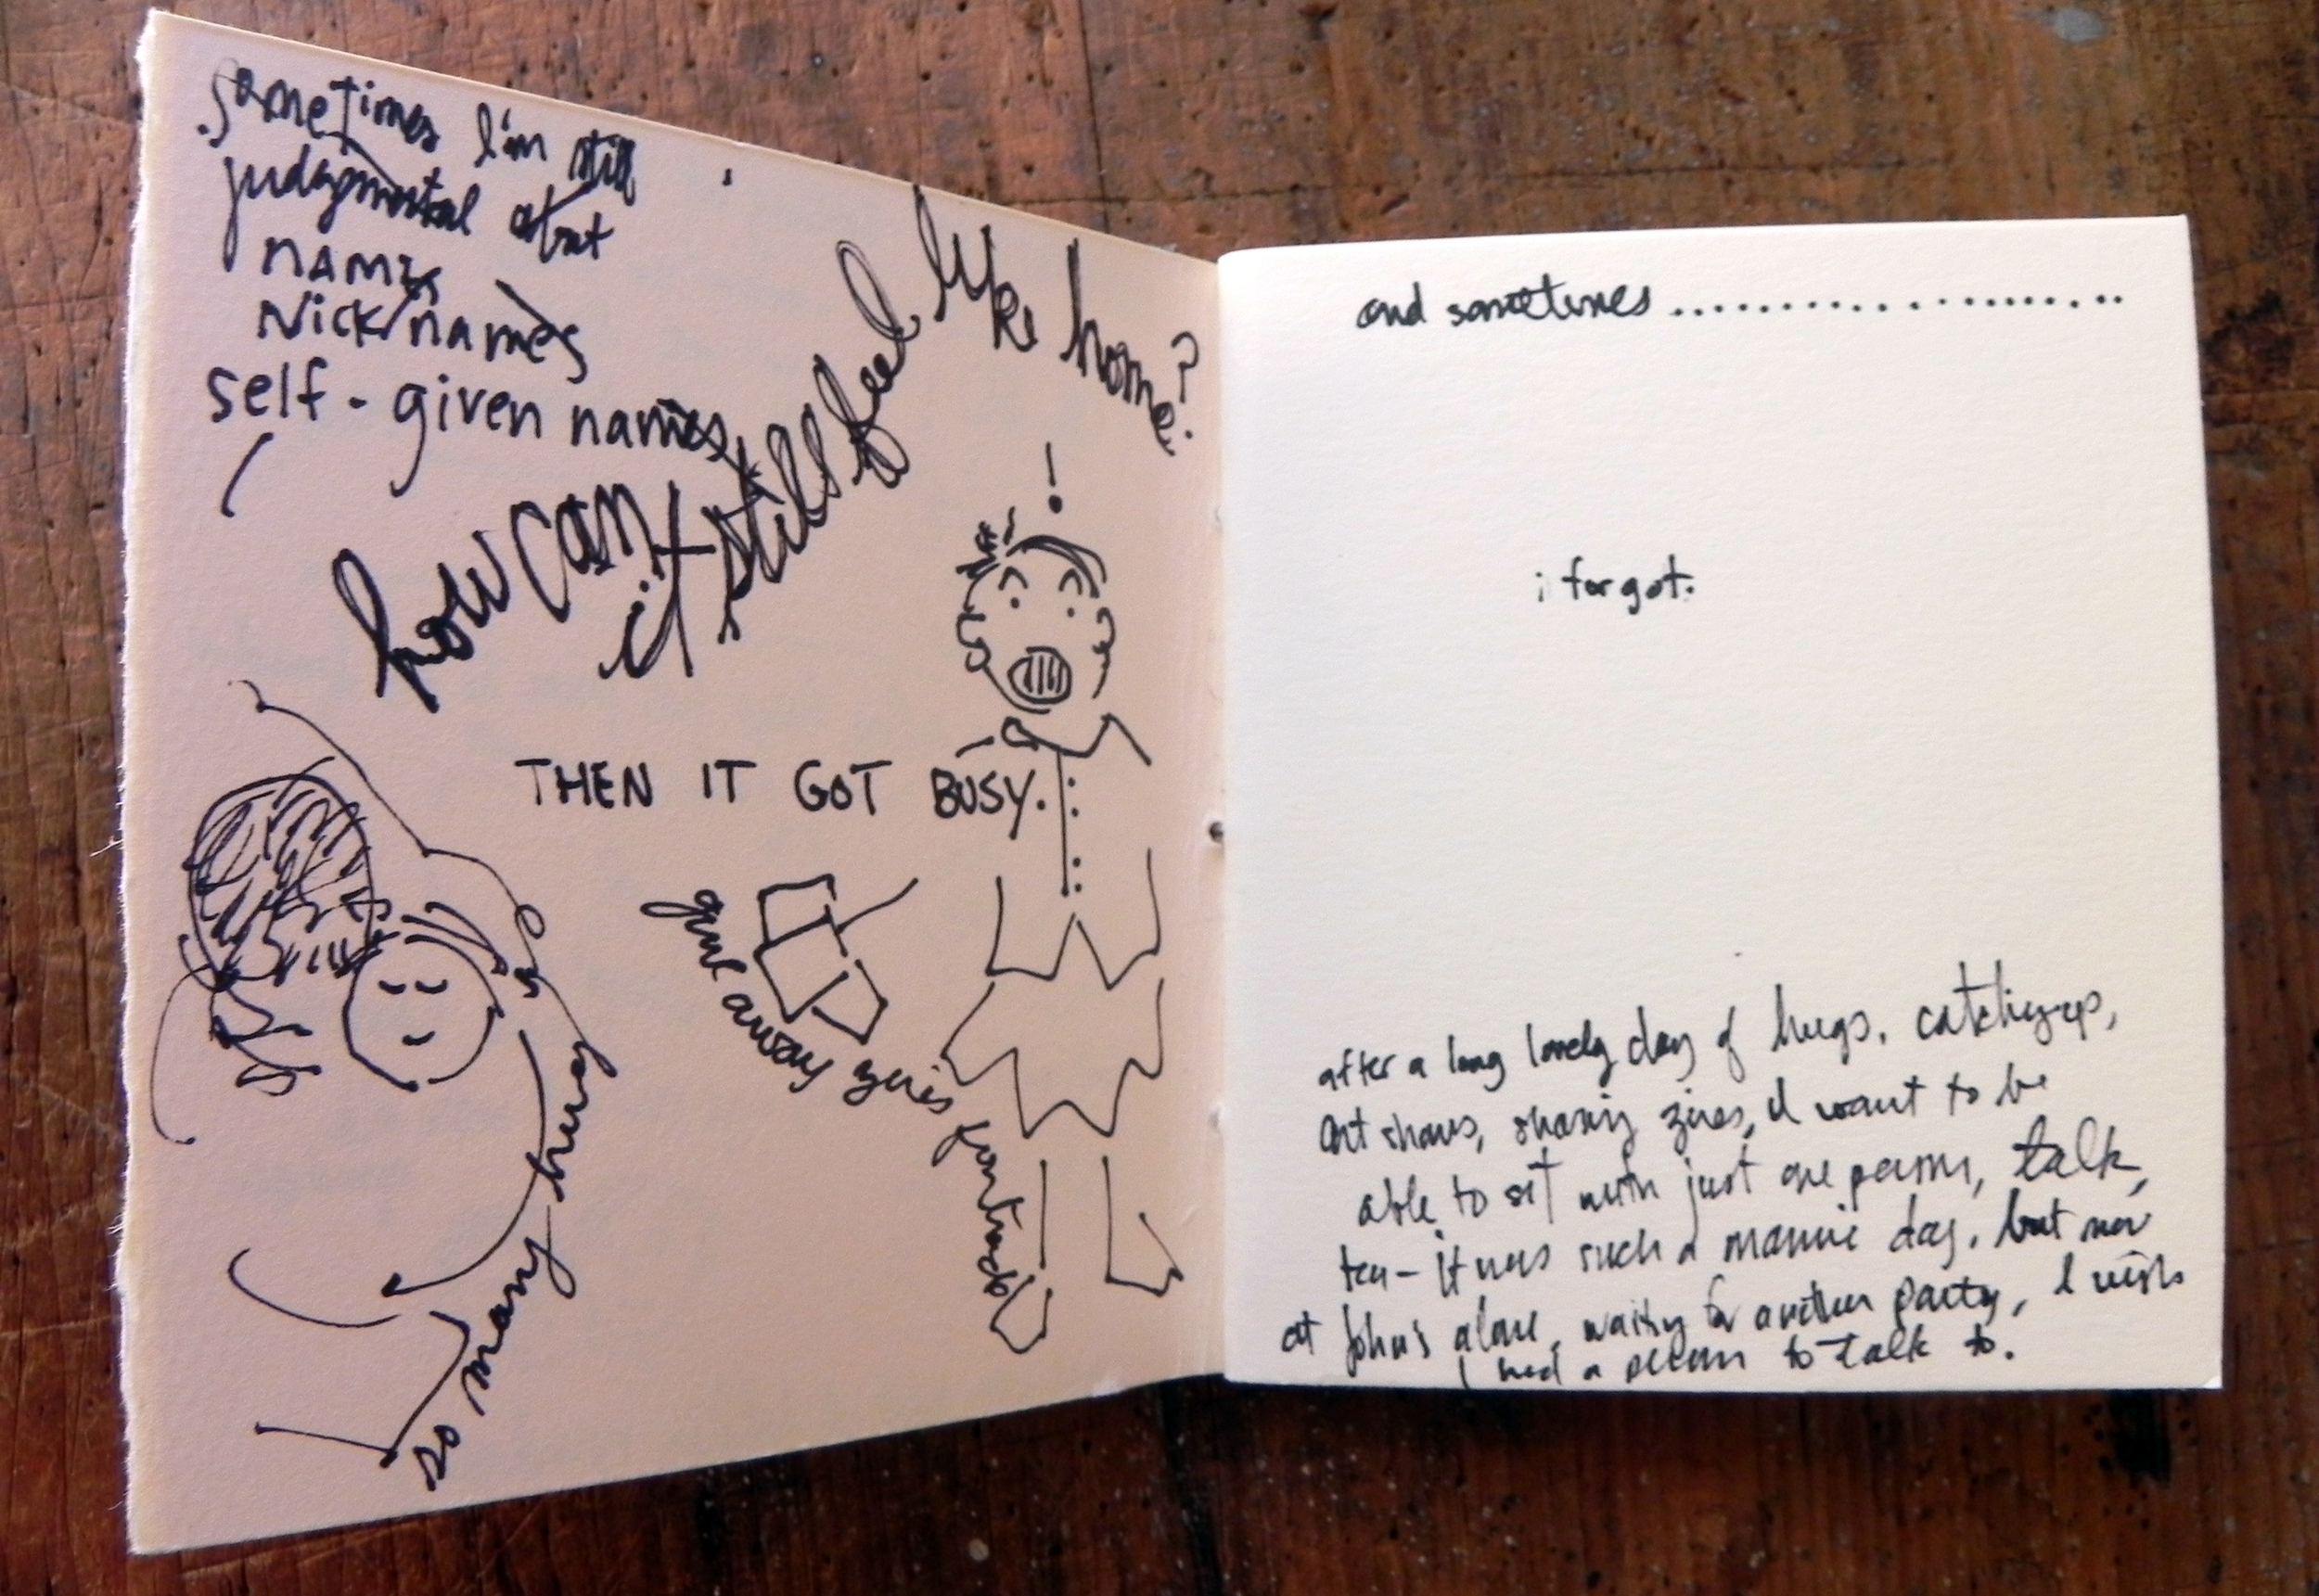 sometimes I'm still
judgmental about
names
Nicknames
self-given names
how can it still feel like home?
!
THEN IT GOT BUSY.
give away zines fontrade
so many hugs
and sometimes......................
i forgot.
after a long lovely day of hugs, catching-up,
art shows, sharing zines, I want to be
able to sit with just one person, talk,
tea - it was such a manic day. but now
at John's alone, waiting for another party, I wish
I had a person to talk to.